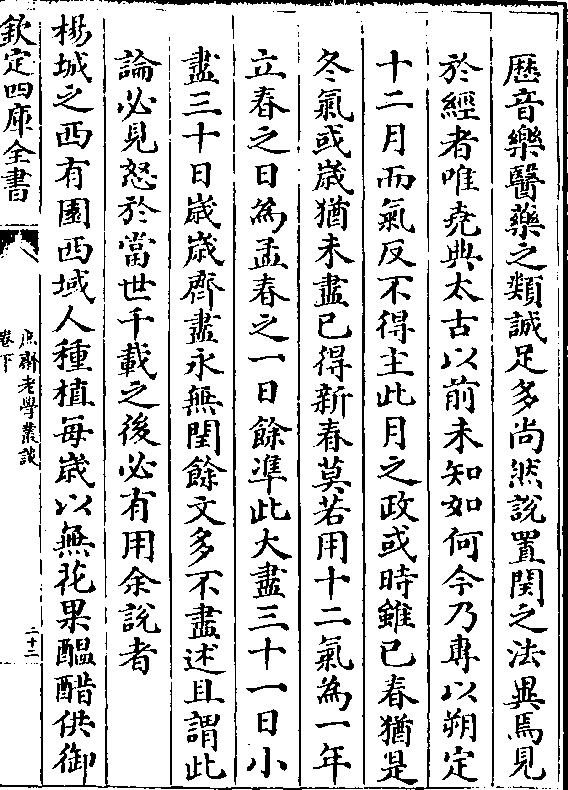 歴音樂醫藥之類誠足多尚然說置閏之法異焉見
於經者唯堯典太古以前未知如何今乃專以朔定
十二月而氣反不得主此月之政或時雖已春猶是
冬氣或嵗猶未盡已得新春莫若用十二氣為一年
立春之日為孟春之一日餘準此大盡三十一日小
盡三十日嵗嵗齊盡永無閏餘文多不盡述且謂此
論必見怒於當世千載之後必有用余說者
楊城之西有園西域人種植每嵗以無花果醖醋供御
欽定四庫全書
庶齋老學叢談
卷下
二十二